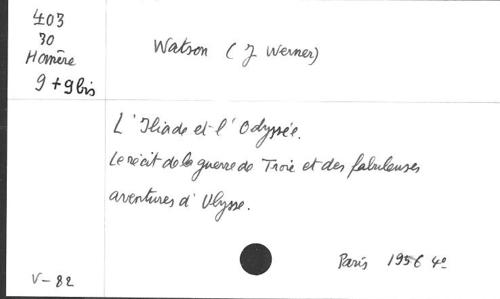 403
30
Homère
9 + 9 bis
Watson (J Werner)
L'Iliade et l'Odyssée.
Le récit de la guerre de Troie et des fabuleuses
aventures d'Ulysse.
Paris 1956 4º
V-82